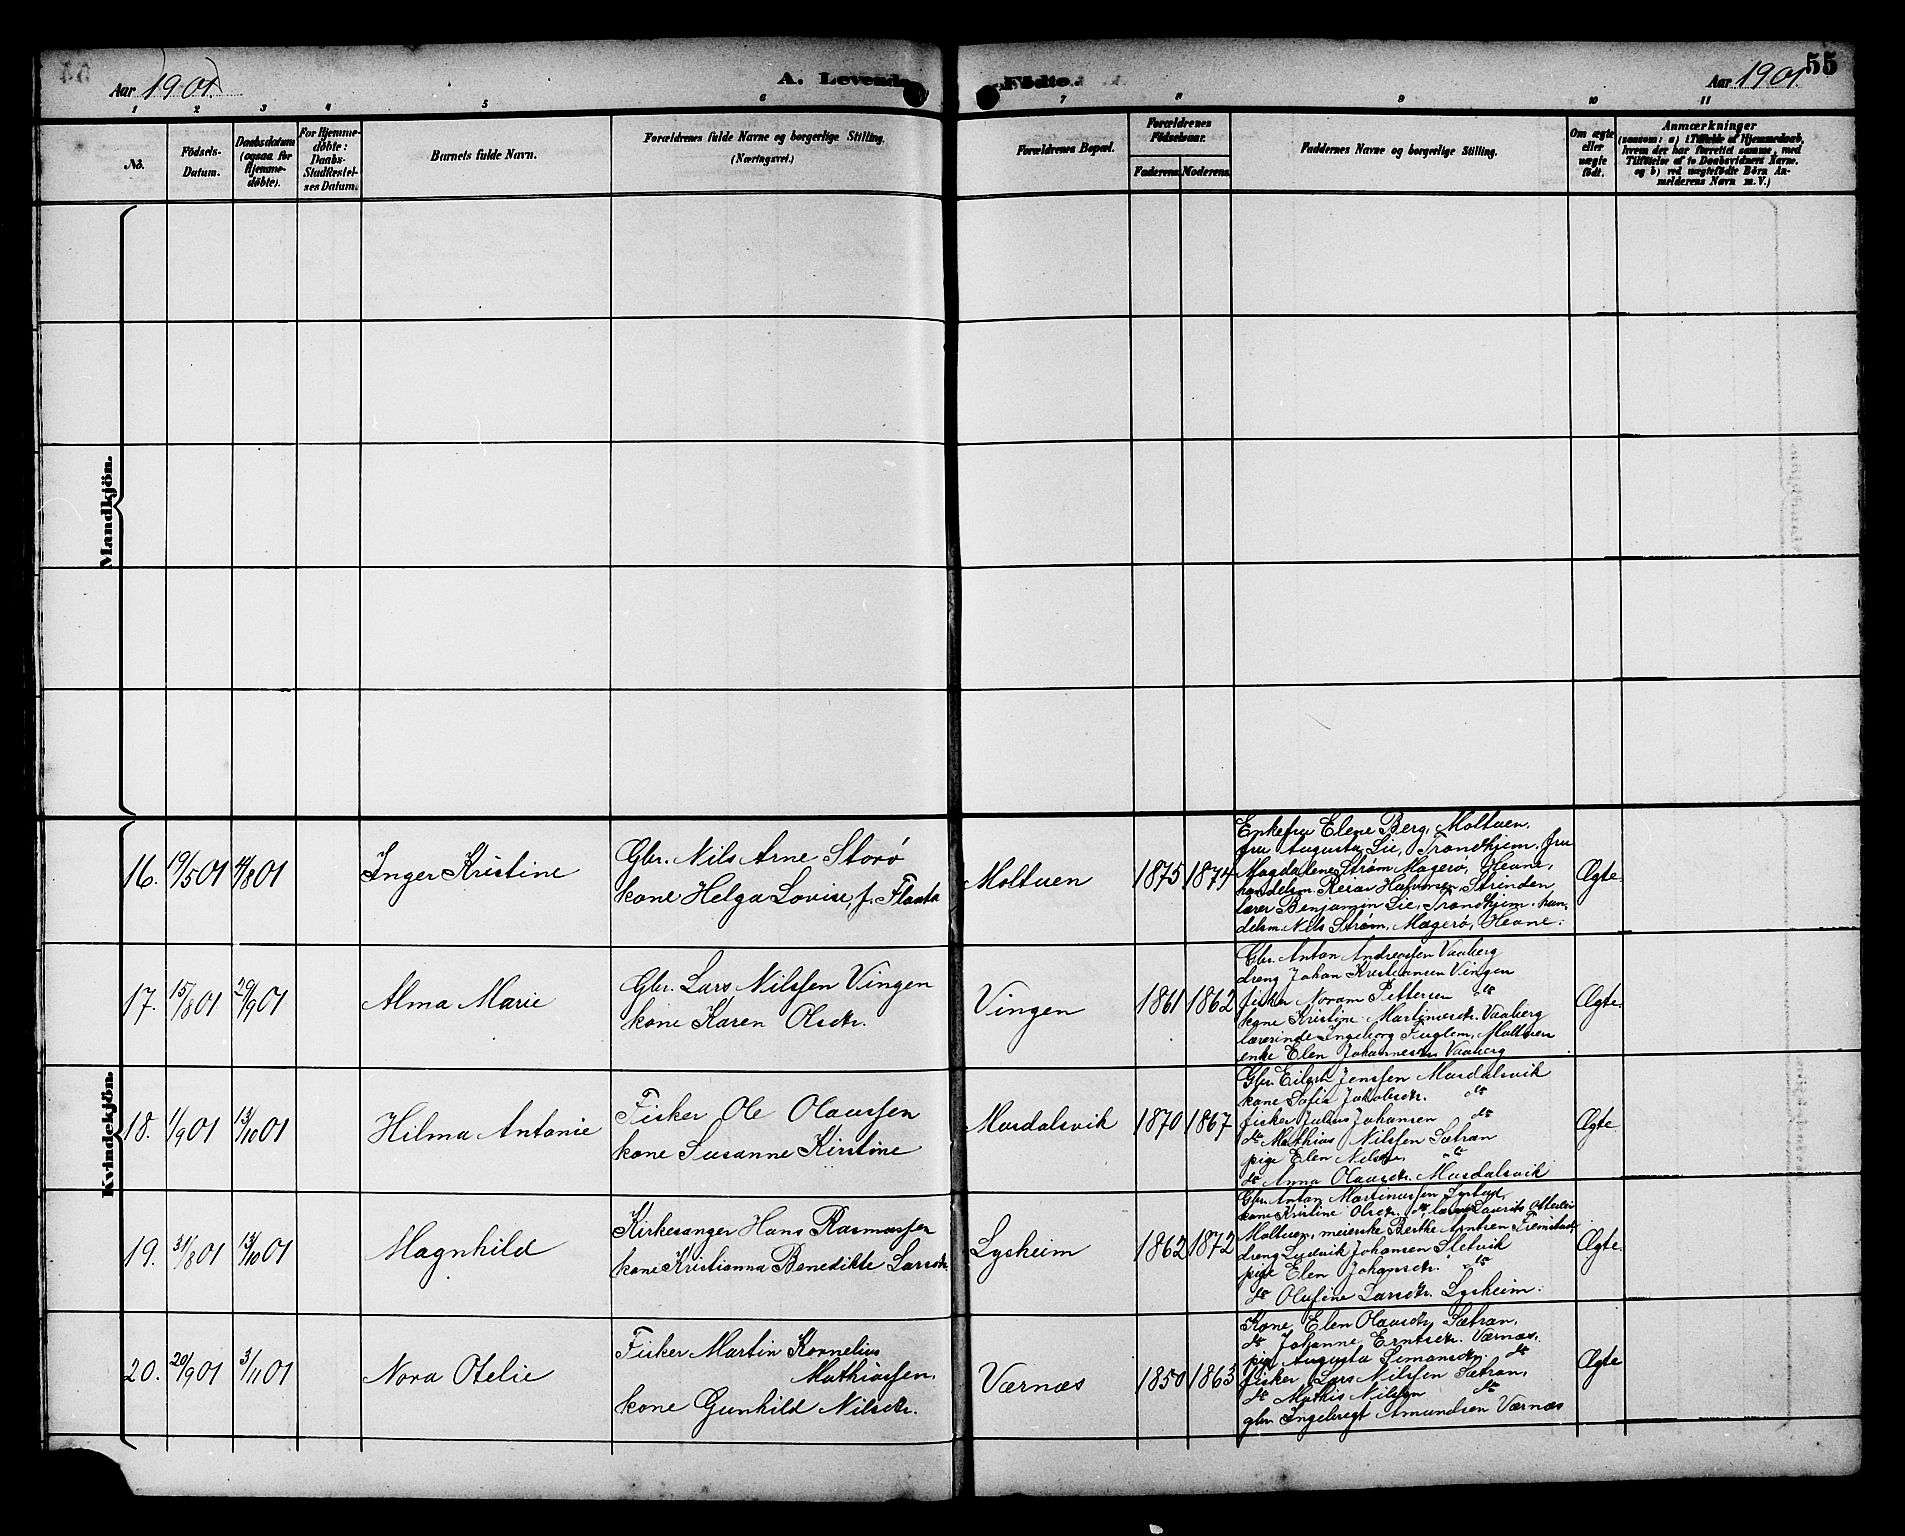 55
Aar 1901. A. Levende Födte. Aar 1901.
1 2 3 4 5 6 7 8 9 10 11
No. Födsels-Datum. Daabsdatum (ogsaa for Hjemme-döbte). For Hjemme-döbte: Daabs-Stadfæstel-ses Datum. Barnets fulde Navn. Forældrenes fulde Navne og borgerlige Stilling. (Næringsvei.) Forældrenes Bopæl. Forældrenes Födselsaar. Faderens. Moderens. Faddernes Navne og borgerlige Stilling. Om ægte eller uægte födt. Anmærkninger
(saasom: a) i Tilfælde af Hjemmedaab,
hvem der har forrettet samme, med
Tilföielse af to Daabsvidners Navne.
og b) ved uægtefödte Börn An-
melderens Navn m. V.)
Mandkjön.
Kvindekjön.
16. 19/5 01 4/8 01 Inger Kristine
Gbr. Nils Arne Storø
kone Helga Lovise, f. Flaata
Moltuen 1875 1874
Enkefru Elene Berg, Moltuen,
fru Augusta Lie, Trondhjem, fru
Magdalene Strøm Magerø, Hevne,
handelsm. Halvorsen, Strinden
lærer Benjamin Lie, Trondhjem, han-
delsm. Nils Strøm, Magerø, Hevne.
Ægte
17. 15/8 01 29/9 01 Alma Marie
Gbr. Lars Nilssen Vingen
kone Karen Olsdtr.
Vingen 1861 1862
Gbr. Anton Andreassen Vaaberg
dreng Johan Kristiansen Vingen
fisker Pettersen do
kone Kristine Martinusdtr. Vaaberg
lærerinde Ingeborg Fuglem, Moltuen
enke Elen Johannesdtr. Vaaberg
Ægte.
18. 1/9 01 13/10 01 Hilma Antonie
Fisker Ole Olaussen
kone Susanne Kirstine
Mordalsvik 1870 1867
Gbr. Eilert Jenssen Mordalsvik
kone Sofie Jakobsdtr. do
fisker Julius Johansen do
do Mathias Nilssen Sætran
pige Elen Nilsdtr. do
do Anna Olausdtr. Mordalsvik
Ægte
19. 31/8 01 13/10 01 Magnhild
Kirkesanger Hans Rasmussen
kone Kristianna Benedikte Larsdtr.
Lysheim 1862 1872
Gbr. Anton Martinussen
kone Kristine Olsdtr. do lærer Laurits
Moltuen, meierske Berthe Arntsen
dreng Ludvik Johansen Sletvik
pige Elen Johansdtr. do
do Olufine Larsdtr. Lysheim.
Ægte
20. 20/9 01 3/11 01 Nora Otelie
Fisker Martin Kornelius
Mathiassen,
kone Gunhild Nilsdtr.
Værnæs 1850 1863
Kone Elen Olausdtr. Sætran,
do Johanne Erntsdtr. Værnæs,
pige Augusta Simonsdtr. do
fisker Lars Nilssen Sætran,
do Mathis Nilssen do
gbr. Ingebregt Amundsen Værnæs
Ægte